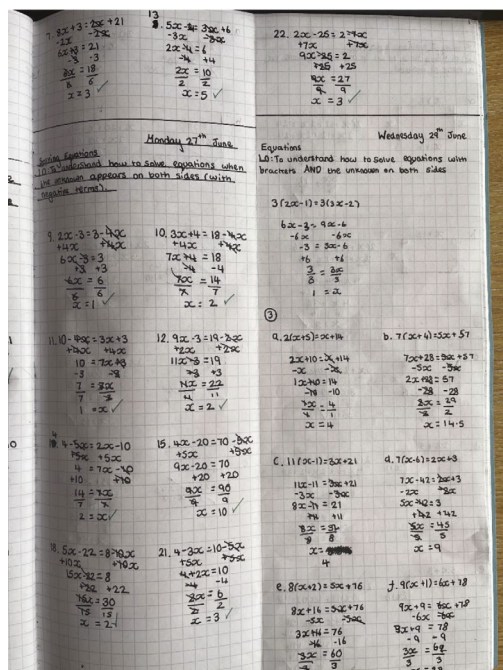 7. 8x+3=2x+21
-2x -2x
6x+3=21
-3 -3
6x=18
6 6
x=3 ✓
13
5x-4=3x+6
-3x -3x
2x-4=6
+4 +4
2x=10
2 2
x=5 ✓
22. 2x-25=2-7x
+7x +7x
9x-25=2
+25 +25
9x=27
9 9
x=3 ✓
Monday 27th June
Solving Equations
LO: To understand how to solve equations when
the unknown appears on both sides (with
negative terms).
9. 2x-3=3-4x
+4x +4x
6x-3=3
+3 +3
6x=6
6 6
x=1 ✓
10. 3x+4=18-4x
+4x +4x
7x+4=18
-4 -4
7x=14
7 7
x=2 ✓
11. 10-4x=3x+3
+4x +4x
10=7x+3
-3 -3
7=7x
7 7
1=x ✓
12. 9x-3=19-2x
+2x +2x
11x-3=19
+3 +3
11x=22
11 11
x=2 ✓
4-5x=2x-10
+5x +5x
4=7x-10
+10 +10
14=7x
7 7
2=x ✓
15. 4x-20=70-5x
+5x +5x
9x-20=70
+20 +20
9x=90
9 9
x=10 ✓
18. 5x-22=8-10x
+10x +10x
15x-22=8
+22 +22
15x=30
15 15
x=2 ✓
21. 4-3x=10-5x
+5x +5x
4+2x=10
-4 -4
2x=6
2 2
x=3 ✓
Wednesday 29th June
Equations
LO: To understand how to solve equations with
brackets AND the unknown on both sides
3(2x-1)=3(3x-2)
6x-3=9x-6
-6x -6x
-3=3x-6
+6 +6
3=3x
3 3
1=x
③
a. 2(x+5)=x+14
2x+10=x+14
-x -x
1x+10=14
-10 -10
1x=4
1 1
x=4
b. 7(x+4)=5x+57
7x+28=5x+57
-5x -5x
2x+28=57
-28 -28
2x=29
2 2
x=14.5
c. 11(x-1)=3x+21
11x-11=3x+21
-3x -3x
8x-11=21
+11 +11
8x=32
8 8
x=
4
d. 7(x-6)=2x+3
7x-42=2x+3
-2x -2x
5x-42=3
+42 +42
5x=45
5 5
x=9
e. 8(x+2)=5x+76
8x+16=5x+76
-5x -5x
3x+16=76
-16 -16
3x=60
3 3
f. 9(x+1)=6x+78
9x+9=6x+78
-6x -6x
3x+9=78
-9 -9
3x=69
3 3